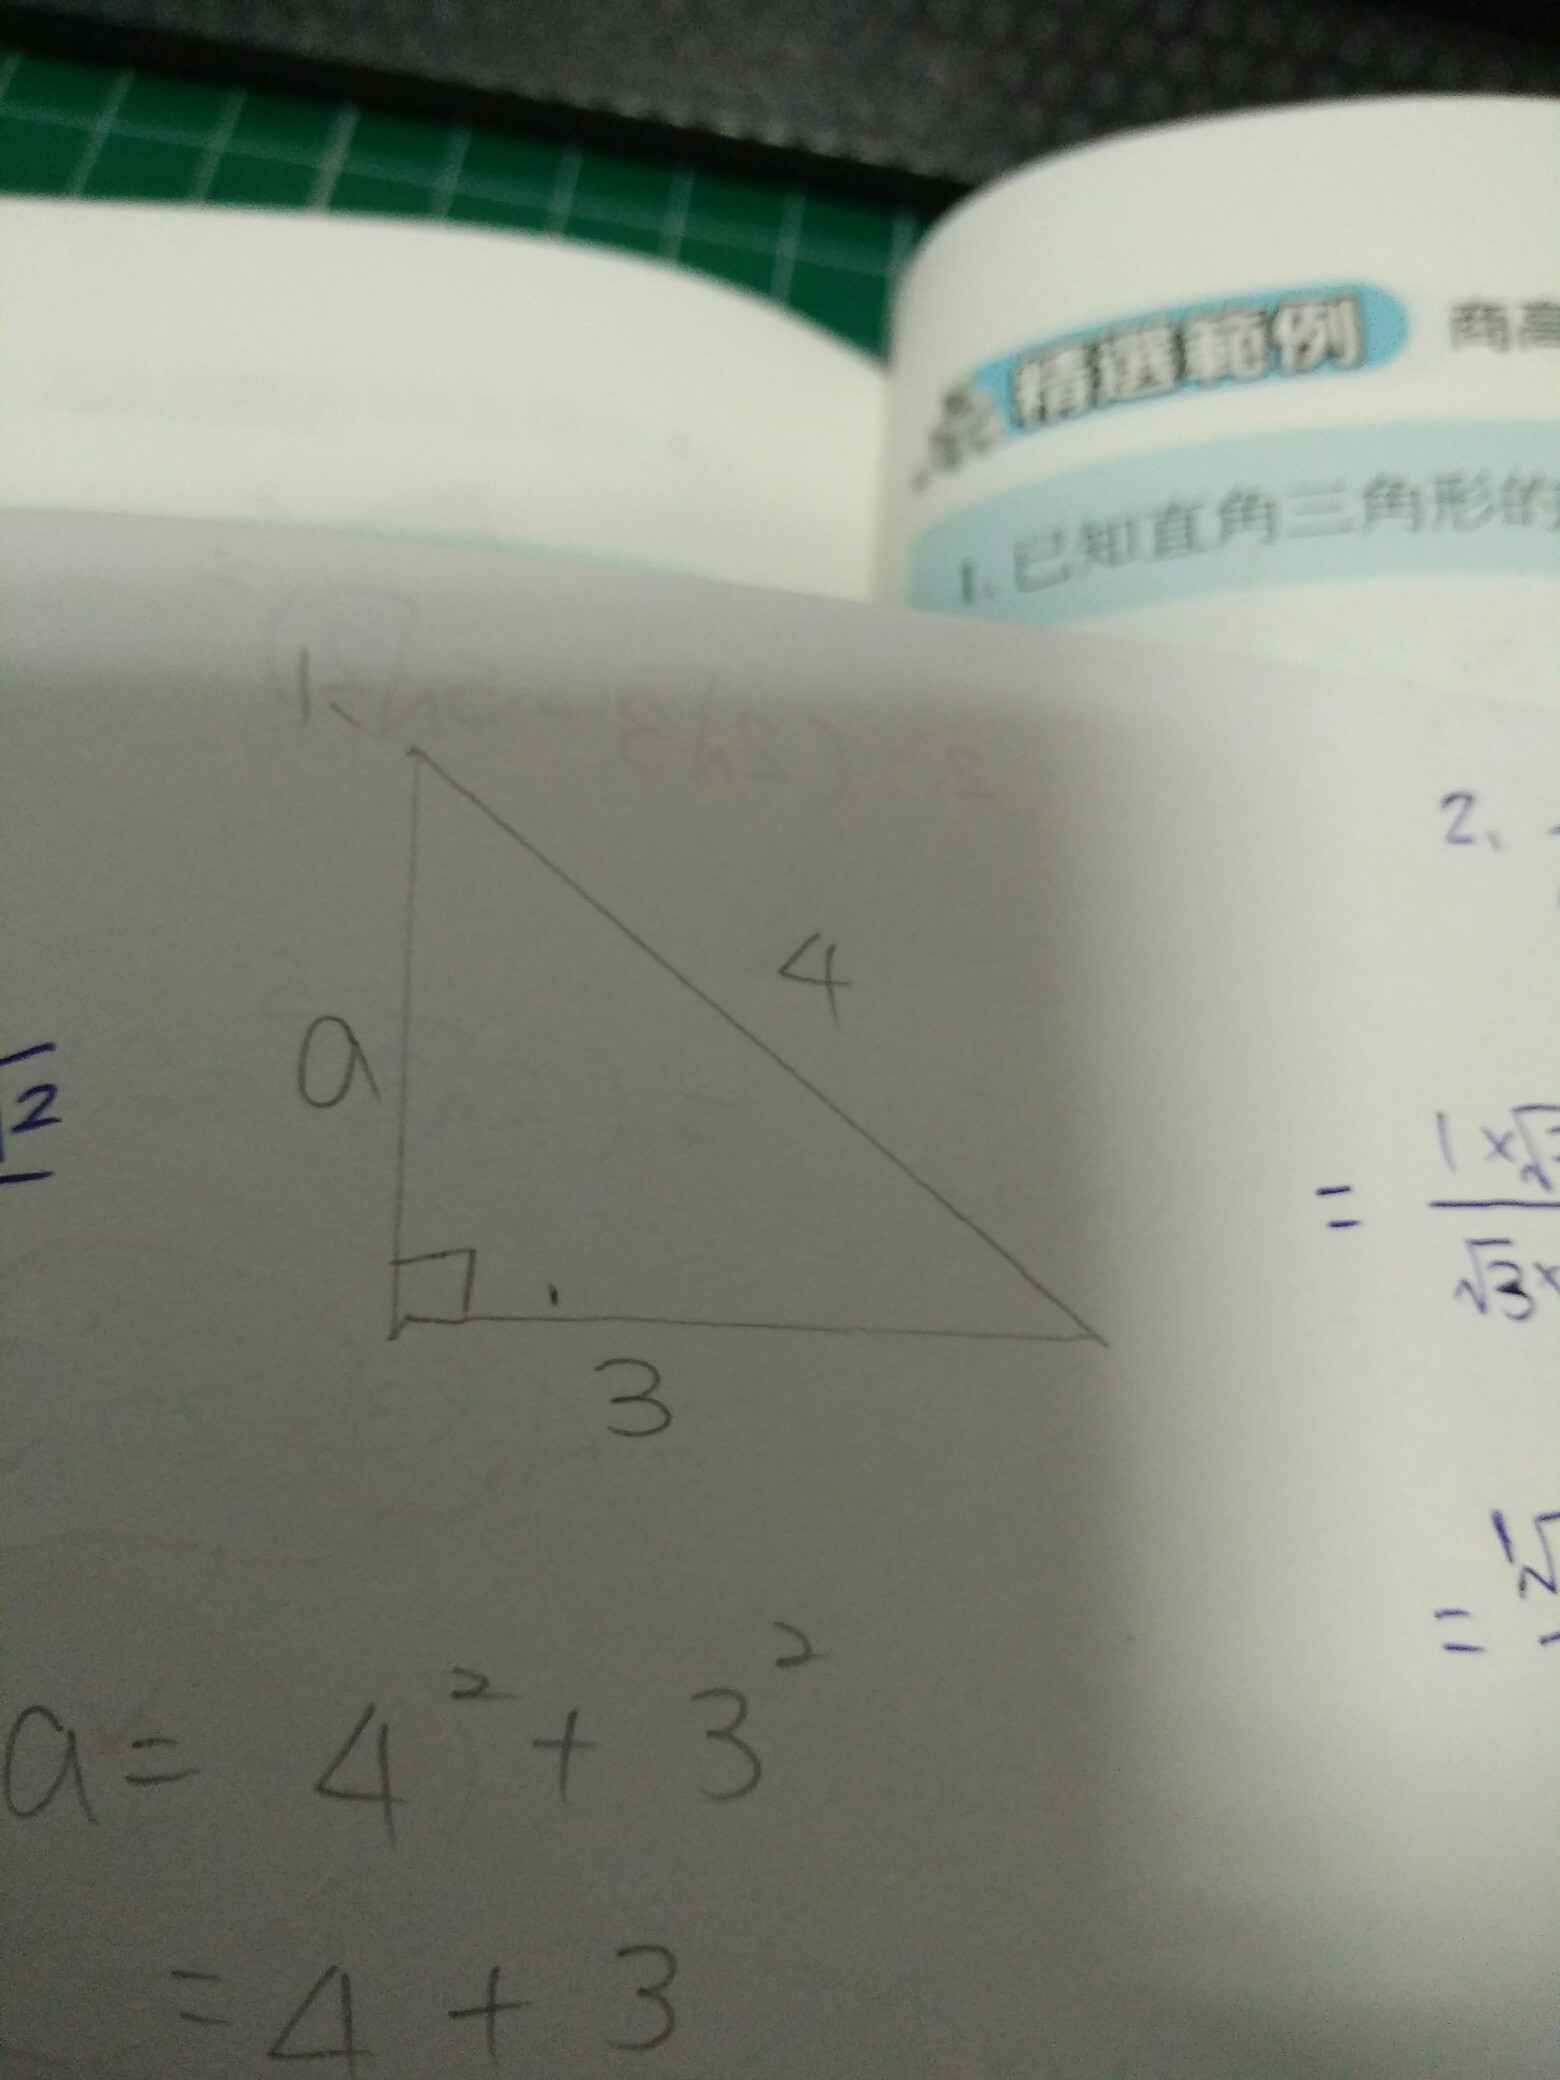 精選範例 商高
1. 已知直角三角形的
1、
2、
4
a
√2
3
1×√
=
√3×
= √
a = 4² + 3²
= 4 + 3